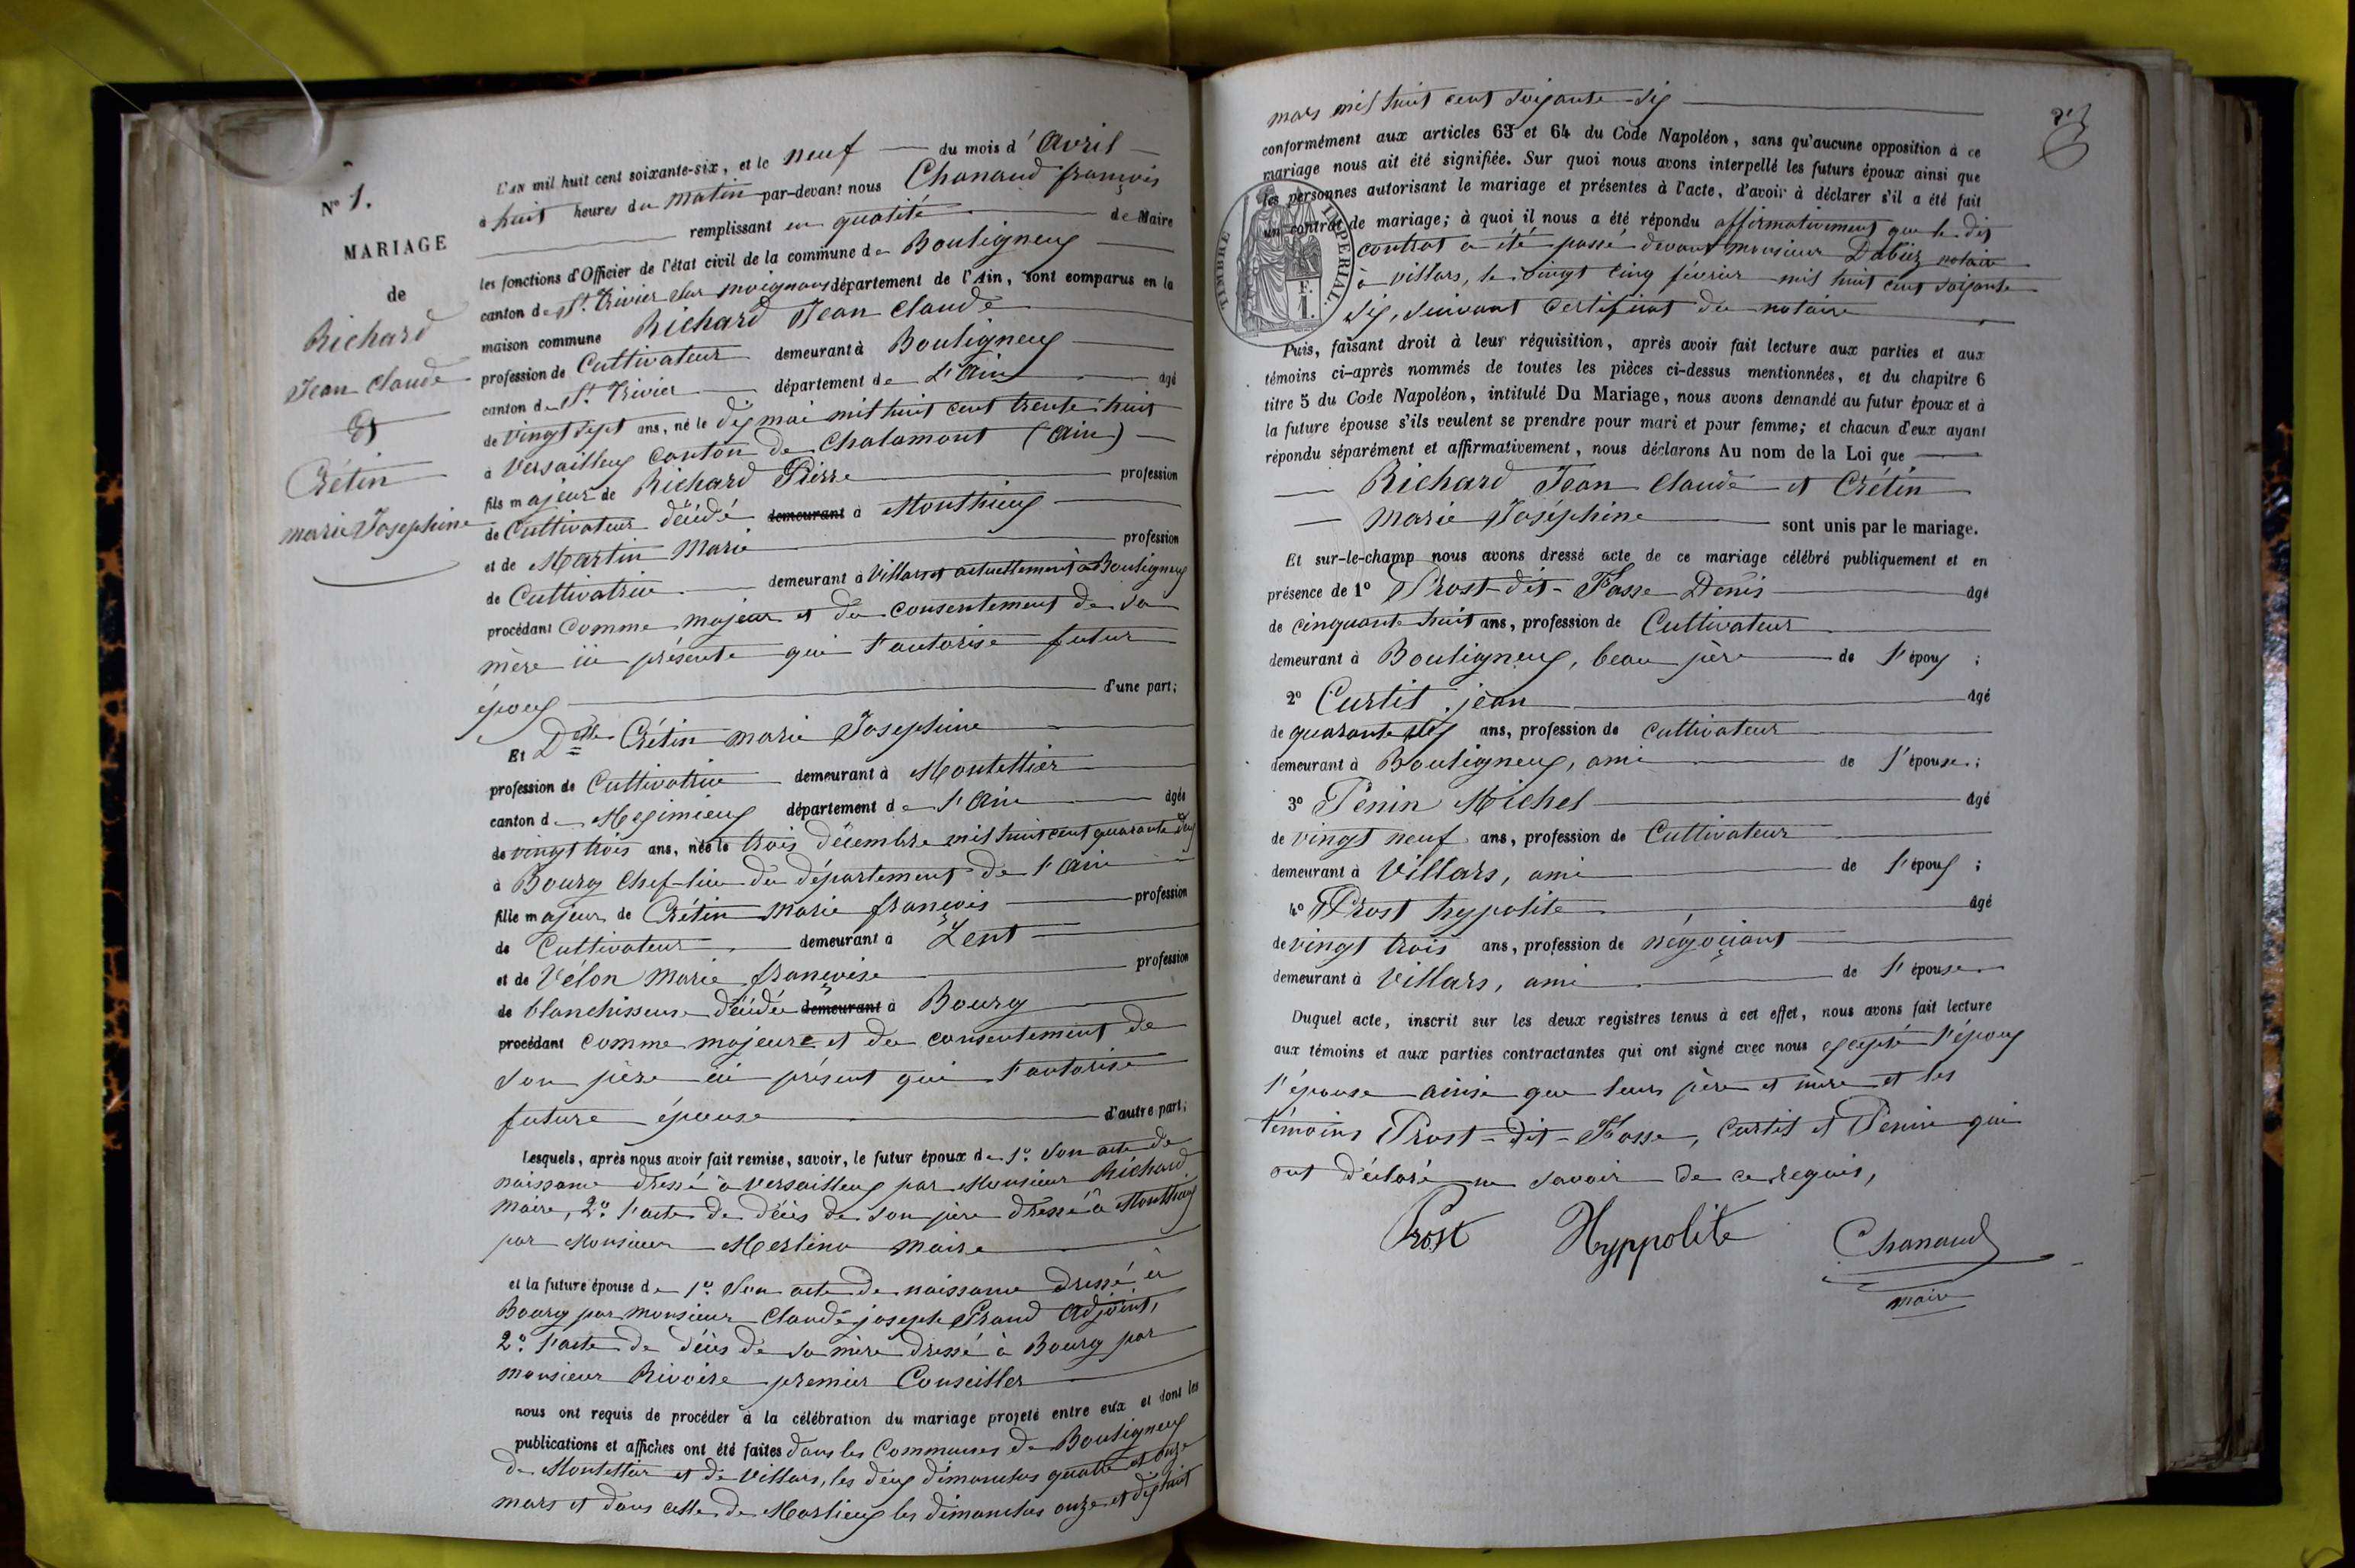 N° 1.
MARIAGE
de
Richard
Jean Claude
Et
Crétin
marie Josephine
L'AN mil huit cent soixante-six, et le neuf du mois d'avril
à huit heures du matin par-devant nous Chanaud françois
remplissant en qualité de Maire
les fonctions d'Officier de l'état civil de la commune de Bouligneux
canton de St. Trivier sur moignans département de l'Ain, sont comparus en la
maison commune Richard Jean Claude
profession de Cultivateur demeurant à Bouligneux
canton de St. Trivier département de L'Ain âgé
de vingt sept ans, né le dix mai mil huit cent trente huit
à Versailleux canton de Chalamont (ain)
fils majeur de Richard Pierre profession
de Cultivateur décédé demeurant à Monthieux
et de Martin Marie profession
de Cultivatrice demeurant à Villars et actuellement à Bouligneux
procédant comme majeur et du consentement de sa
mère ici présente qui l'autorise futur
époux d'une part;
Et Delle Crétin marie Josephine
profession de Cultivatrice demeurant à Montellier
canton de Meximieux département de l'Ain âgée
de vingt trois ans, née le trois décembre mil huit cent quarante deux
à Bourg chef-lieu du département de l'Ain
fille majeure de Crétin marie françois profession
de Cultivateur demeurant à Lent
et de Vélon Marie françoise profession
de blanchisseuse décédée demeurant à Bourg
procédant comme majeure et du consentement de
son père ici présent qui l'autorise
future épouse d'autre part;
Lesquels, après nous avoir fait remise, savoir, le futur époux de 1° son acte de
naissance dressé à Versailleux par Monsieur Richard
Maire, 2° l'acte de décès de son père dressé à Monthieux
par Monsieur Merlino maire
et la future épouse de 1° son acte de naissance dressé à
Bourg par monsieur Claude joseph Grand adjoint,
2° l'acte de décès de sa mère dressé à Bourg par
monsieur Rivoire premier Conseiller
nous ont requis de procéder à la célébration du mariage projeté entre eux et dont les
publications et affiches ont été faites dans les Communes de Bouligneux
de Montellier et de Villars, les deux dimanches quatre et onze
mars et dans celle de Marlieux les dimanches onze et dix huit
mars mil huit cent soixante-six
conformément aux articles 63 et 64 du Code Napoléon, sans qu'aucune opposition à ce
mariage nous ait été signifiée. Sur quoi nous avons interpellé les futurs époux ainsi que
les personnes autorisant le mariage et présentes à l'acte, d'avoir à déclarer s'il a été fait
un contrat de mariage; à quoi il nous a été répondu affirmativement que le dit
contrat a été passé devant monsieur Dubiez notaire
à villars, le vingt cinq février mil huit cent soixante
six, suivant certificat du notaire
TIMBRE IMPERIAL.
F.
1.
Puis, faisant droit à leur réquisition, après avoir fait lecture aux parties et aux
témoins ci-après nommés de toutes les pièces ci-dessus mentionnées, et du chapitre 6
titre 5 du Code Napoléon, intitulé Du Mariage, nous avons demandé au futur époux et à
la future épouse s'ils veulent se prendre pour mari et pour femme; et chacun d'eux ayant
répondu séparément et affirmativement, nous déclarons Au nom de la Loi que
Richard Jean Claude et Crétin
Marie Joséphine sont unis par le mariage.
Et sur-le-champ nous avons dressé acte de ce mariage célébré publiquement et en
présence de 1° Prost-dit-Fasse Denis âgé
de cinquante huit ans, profession de Cultivateur
demeurant à Bouligneux, beau père de l'époux ;
2° Curtit jean âgé
de quarante six ans, profession de cultivateur
demeurant à Bouligneux, ami de l'épouse ;
3° Penin Michel âgé
de vingt neuf ans, profession de Cultivateur
demeurant à Villars, ami de l'époux ;
4° Prost hypolite âgé
de vingt trois ans, profession de négoçiant
demeurant à Villars, ami de l'épouse
Duquel acte, inscrit sur les deux registres tenus à cet effet, nous avons fait lecture
aux témoins et aux parties contractantes qui ont signé avec nous excepté l'époux
l'épouse ainsi que leurs père et mère et les
témoins Prost-dit-Fasse, Curtit et Penin qui
ont déclaré ne savoir de ce requis,
Prost Hyppolite Chanaud
maire